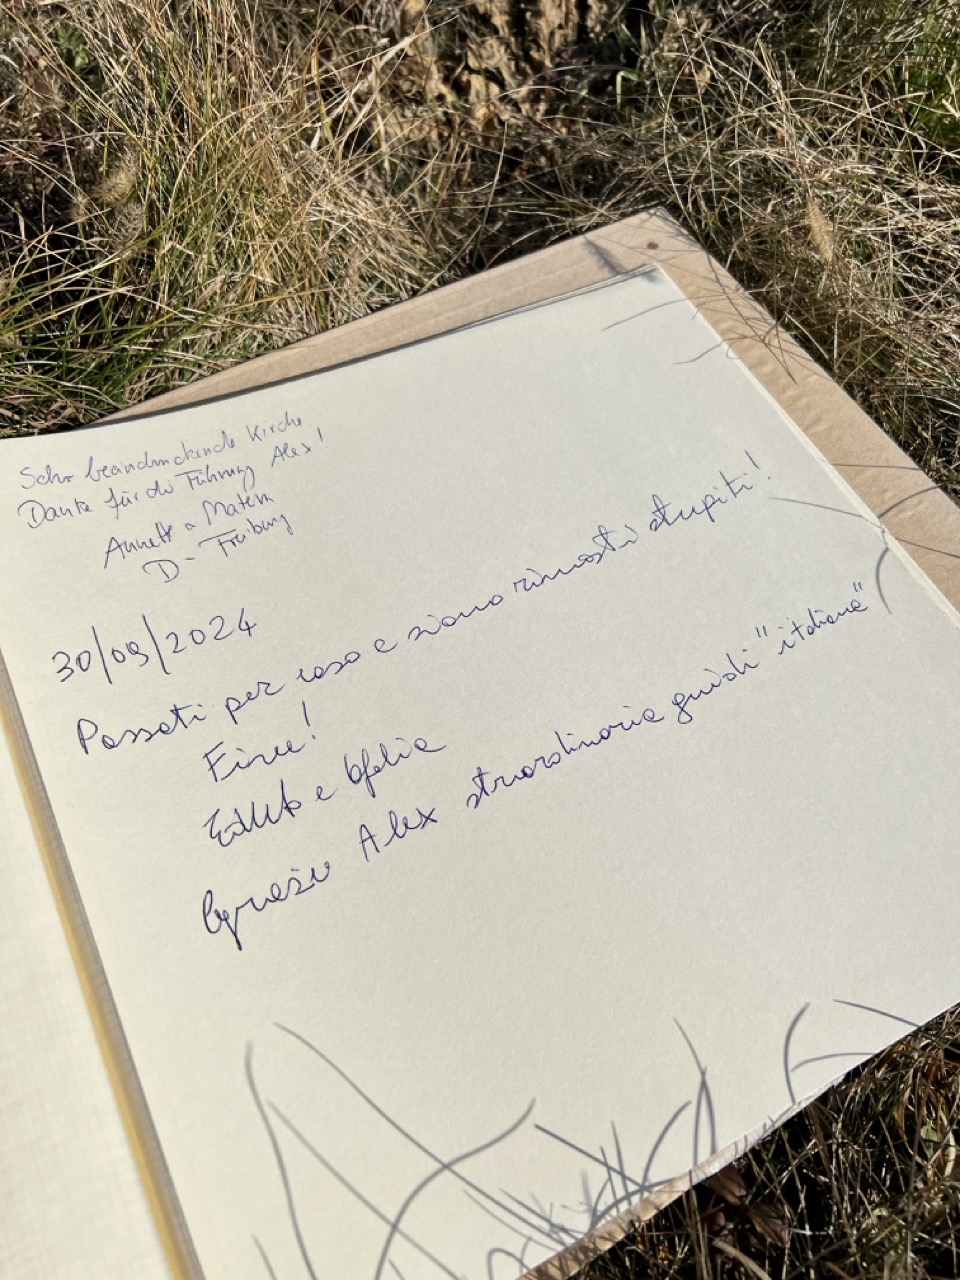 Sehr beeindruckende Kirche.
Danke für die Führung Alex!
Annett
D - Freiburg
30/09/2024
Passati per caso e siamo rimasti stupiti!
e Ofelia
Grazie Alex straordinaria guida "italiana"